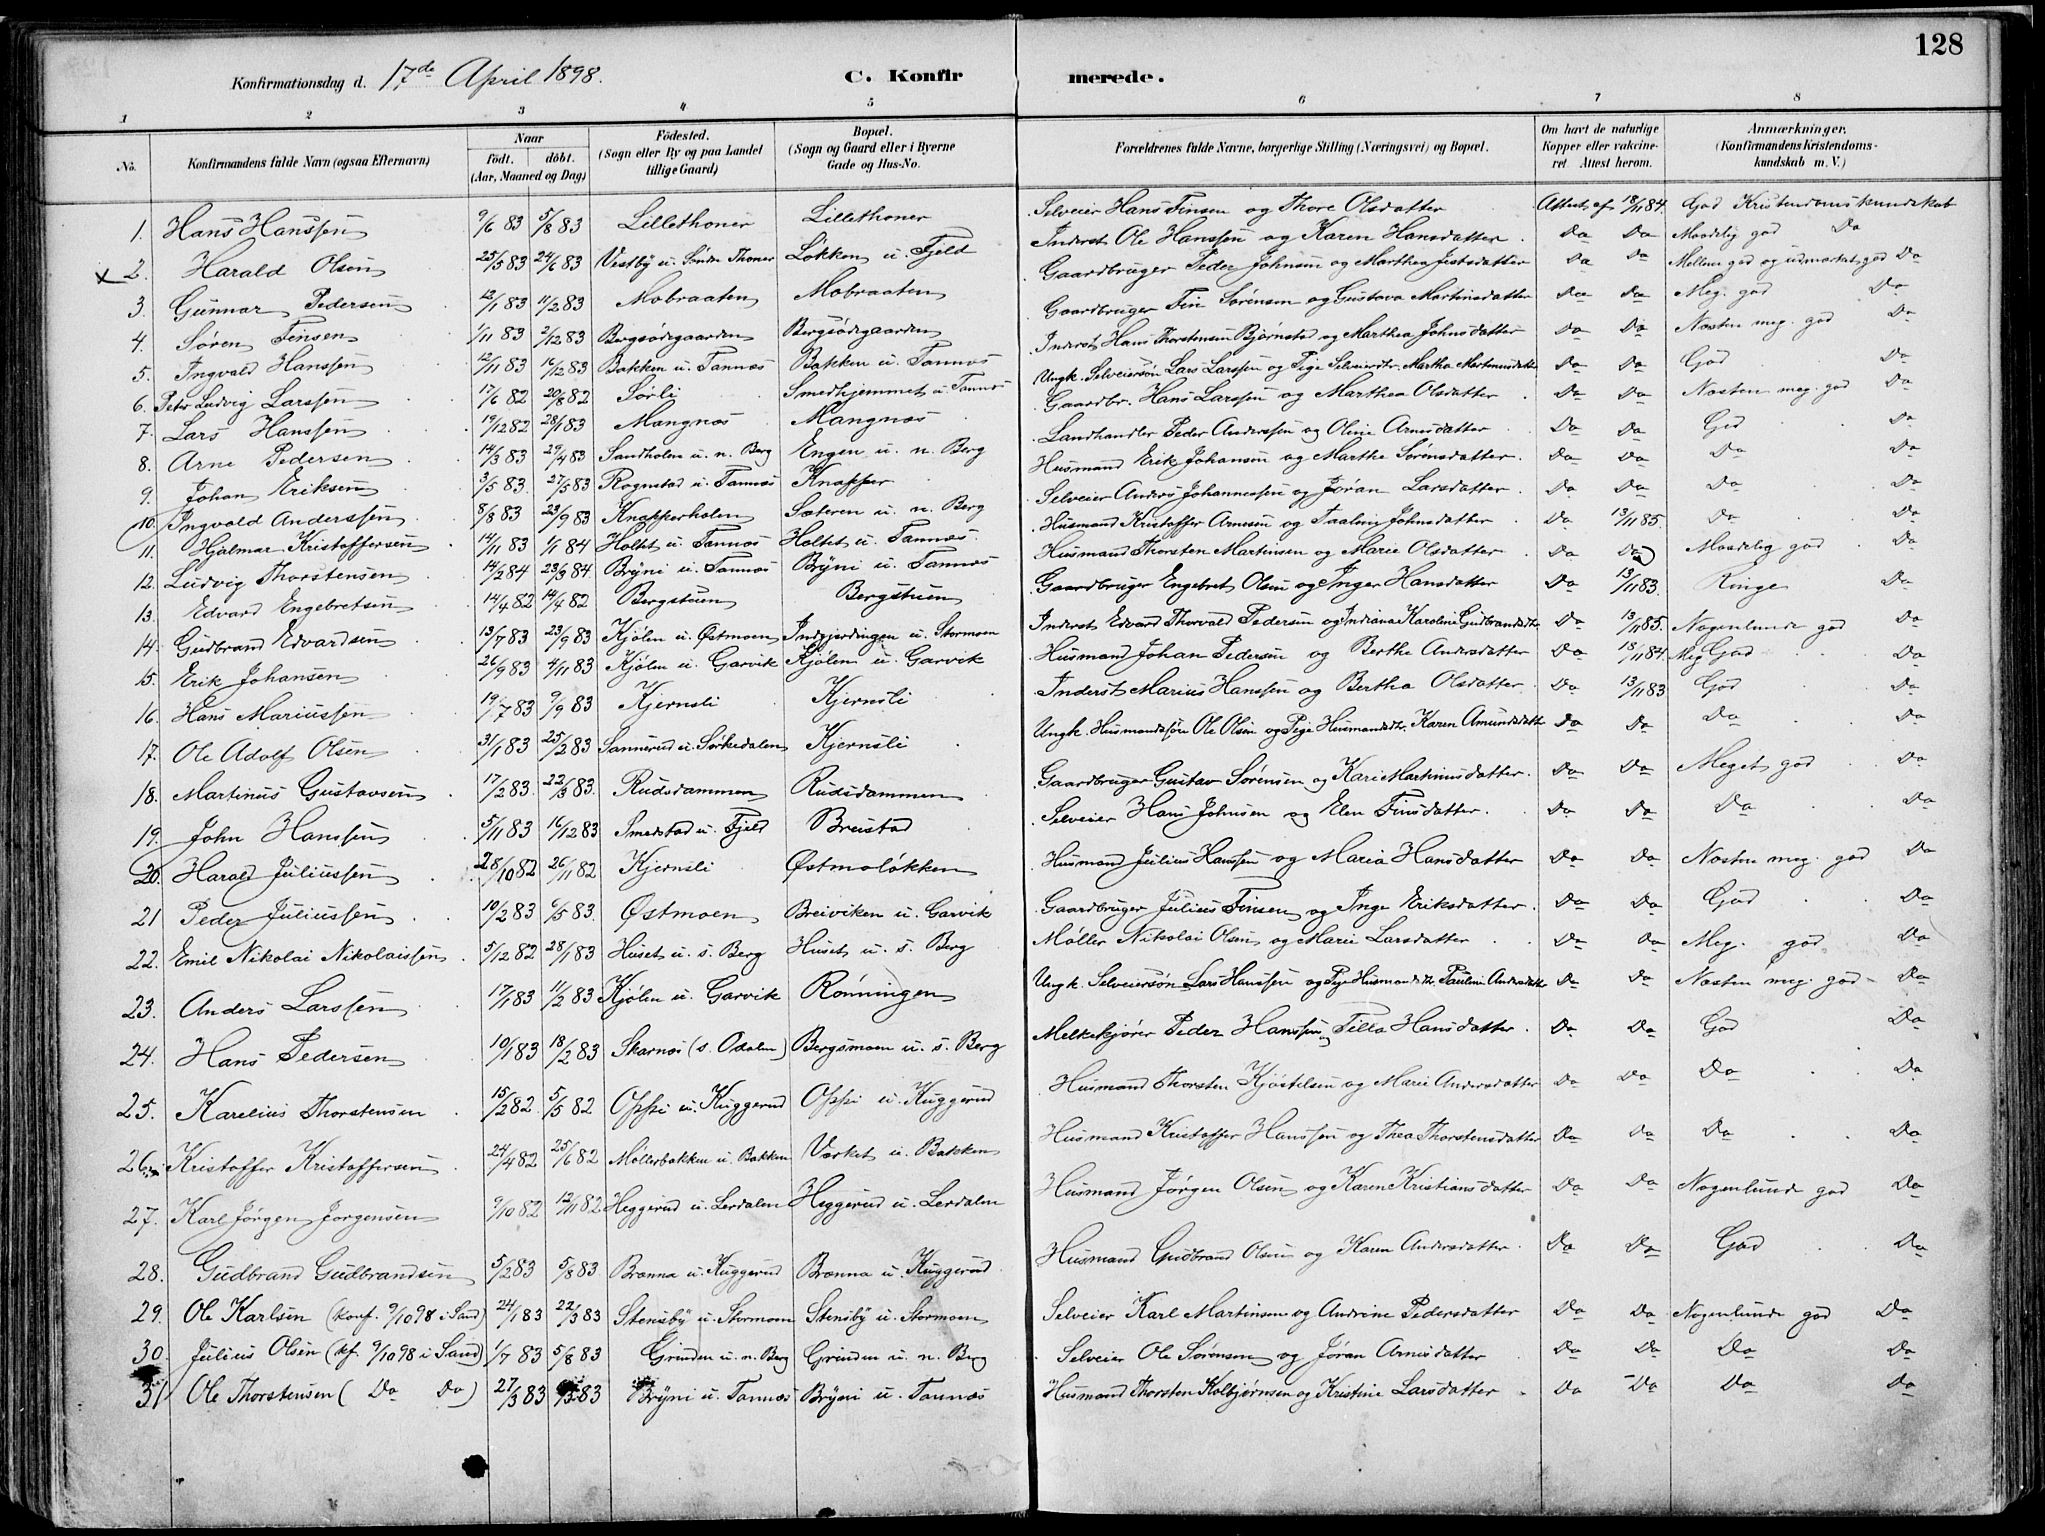 128
Konfirmationsdag d. 17de April 1898. C. Konfir merede.
1 2 3 4 5 6 7 8
No. Konfirmandens fulde Navn (ogsaa Efternavn) Naar født. døbt. (Aar, Maaned og Dag) Fødested. (Sogn eller By og paa Landet tillige Gaard) Bopæl. (Sogn og Gaard eller i Byerne Gade og Hus-No. Forældrenes fulde Navne, borgerlige Stilling (Næringsvei) og Bopæl. Om havt de naturlige Kopper eller vakcineret. Attest herom. Anmærkninger. (Konfirmandens Kristendomskundskab m. V.)
1. Hans Hanssen 9/6 83 5/8 83 Lillethoner Lillethoner Selveier Hans Finsen og Thore Olsdatter Attest af 18/11 84. God Kristendomskundskab
2. Harald Olsen 25/5 83 24/6 83 Vestby u. Søndr Thoner Løkken u. Fjeld Inderst Ole Hanssen og Karen Hansdatter Do Do Maadelig god Do
3. Gunnar Pedersen 12/1 83 11/2 83 Mobraaten Mobraaten Gaardbruger Peder Johnsen og Marthea Do Do Mellem god og udmærket god Do
4. Søren Finsen 1/11 83 2/12 83 Bergsødegaarden Bergsødegaarden Gaardbruger Fin Sørensen og Gustava Martinsdatter Do Do Meg. god Do
5. Ingvald Hanssen 12/11 83 16/12 83 Bakken u. Tannæs Bakken u. Tannæs Inderst Hans Thorstensen Bjørnstad og Marthea Johnsdatter Do Do Næsten meg. god Do
6. Peter Ludvig Larssen 17/6 82 20/8 82 Sørli Smedhjemmet u. Tannæs Ungk. Selveiersøn Lars Larssen og Pige Selveierdtr. Martha Martinusdatter Do Do God Do
7. Lars Hanssen 19/12 82 28/1 83 Mangnæs Mangnæs Gaardbr. Hans Larssen og Marthea Olsdatter Do Do Næsten meg. god Do
8. Arne Pedersen 14/3 83 29/4 83 Sandholen u. n. Berg Engen u. n. Berg Landhandler Peder Anderssen og Oline Arnesdatter Do Do God Do
9. Johan Eriksen 3/5 83. 27/5 83 Rognstad u. Tannæs Knapper Husmand Erik Johansen og Marthe Sørensdatter Do Do Do Do
10. Ingvald Anderssen 8/8 83 23/9 83 Knapperholen Sæteren u. n. Berg Selveier Anders Johannessen og Jøran Larsdatter Do Do Do Do
11. Hjalmar Kristoffersen 14/11 83 1/1 84 Holtet u. Tannæs Holtet u. Tannæs Husmand Kristoffer Arnesen og Paaline Johnsdatter Do 13/11 85. Do Do
12. Ludvig Thorstensen 14/2 84 23/3 84. Bryni u. Tannæs Bryni u. Tannæs Husmand Thorsten Martinsen og Marie Olsdatter Do Do Maadelig god Do
13. Edvard Engebretsen 14/4 82 14/4 82 Bergstuen Bergstuen Gaardbruger Engebret Olsen og Inger Hansdatter Do 13/11 83. Ringe Do
14. Gudbrand Edvardsen 13/7 83 23/9 83 Kjølen u. Østmoen Indgjerdingen u. Stormoen Inderst Edvard Thorvald Pedersen og Indiana Karoline Gudbrandsdtr. Do 13/11 85. Nogenlunde god Do
15. Erik Johansen 26/9 83 4/11 83 Kjølen u. Garvik Kjølen u. Garvik Husmand Johan Pedersen og Berthe Andersdatter Do 18/11 84. Meg. God Do
16. Hans Mariussen 19/7 83 9/9 83 Kjernsli Kjernsli Inderst Marius Hanssen og Bertha Olsdatter Do 13/11 83 God Do
17. Ole Adolf Olsen 31/1 83 25/2 83 Sannerud u. Sørkedalen Kjernsli Ungk. Husmandssøn Ole Olsen og Pige Husmandsdtr. Karen Amundsdatter Do Do Do Do
18. Martinus Gustavsen 17/2 83. 22/3 83. Rudsdammen Rudsdammen Gaardbruger Gustav Sørensen og Kari Martinusdatter. Do Do Meget god Do
19. John Hanssen 5/11 83 16/12 83 Smedstad u. Fjeld Breistad Selveier Hans Johnsen og Elen Finsdatter. Do Do Do Do
20. Harald Juliussen 28/10 82 26/11 82 Kjernsli Østmoløkken Husmand Julius Hanssen og Maria Hansdatter Do Do Næsten meg. god Do
21 Peder Juliussen 10/2 83 6/5 83. Østmoen Breiviken u. Garvik Gaardbruger Julius Finsen og Inge Eriksdatter. Do Do God Do
22. Emil Nikolai Nikolaissen 5/12 82 28/1 83 Huset u. s. Berg Huset u. s. Berg Møller Nikolai Olsen og Marie Larsdatter Do Do Meg. god Do
23. Anders Larssen 17/1 83 11/2 83 Kjølen u. Garvik Rønningen Ungk. Selveiersøn Lars Hanssen og Pige Husmandsdtr. Pauline Andersdatter Do Do Næsten meg. god Do
24. Hans Pedersen 10/1 83 18/2 83 Skarnæs (s. Odalen) Bergsmoen u. s. Berg Melkekjører Peder Hanssen og Tilla Hansdatter. Do Do God Do
25. Karelius Thorstensen 15/2 82 5/5 82 Oppi u. Kuggerud Oppi u. Kuggerud Husmand Thorsten Kjøstelsen og Marie Andersdatter Do Do Do Do
26. Kristoffer Kristoffersen 24/4 82 25/6 82 Møllerbakken u. Bakken Værket u. Bakken Husmand Kristoffer Hanssen og Thea Thorstensdatter Do Do Do Do
27. Karl Jørgen Jørgensen 9/10 82 12/11 82 Heggerud u. Lerdalen Heggerud u. Lerdalen Husmand Jørgen Olsen og Karen Kristiansdatter Do Do Nogenlunde god Do
28. Gudbrand Gudbrandsen 5/2 83 5/8 83 Brænna u. Kuggerud Brænna u. Kuggerud Husmand Gudbrand Olsen og Karen Andersdatter. Do Do God Do
29. Ole Karlsen (konf. 9/10 98 i Sand) 24/1 83 22/3 83 Stensby u. Stormoen Stensby u. Stormoen Selveier Karl Martinsen og Andrine Pedersdatter Do Do Nogenlunde god Do
30. Julius Olsen (kf. 9/10 98 i Sand) 1/7 83 5/8 83 Grinden u. n. Berg Grinden u. n. Berg Selveier Ole Sørensen og Jøran Arnesdatter Do Do Do Do
31 Ole Thorstensen (Do Do) 27/3 83 83 Bryni u. Tannæs Bryni u. Tannæs Husmand Thorsten Kolbjørnsen og Kristine Larsdatter Do Do Do Do